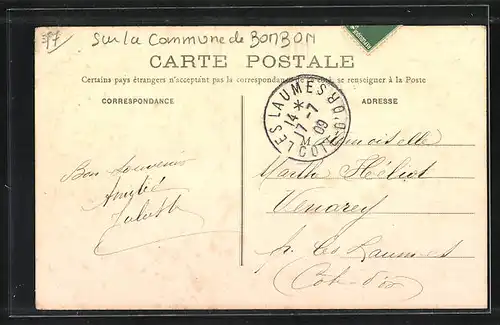 Sur la Commune de BONBON
CARTE POSTALE
Certains pays étrangers n'acceptant pas la correspondance se renseigner à la Poste
CORRESPONDANCE
ADRESSE
LES LAUMES CÔTE D'OR
14 *
17 - 7
09
Bon souvenir
Amitié
Juliette
Héliot
Venarey
p. les Laumes
Côte-d'or